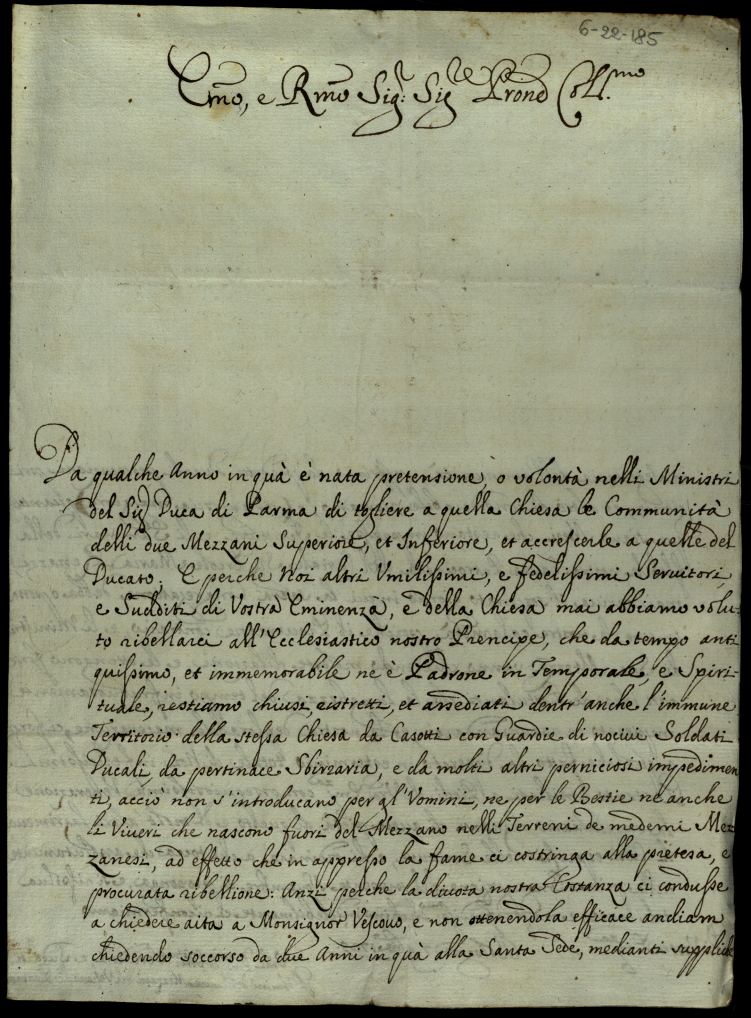 6-22-185
Emo, e Rmo Sig.r Sig.re Prone Coll.mo
Da qualche Anno in quà è nata pretensione, o volontà nelli Ministri
del Sig.r Duca di Parma di togliere a quella Chiesa le Communità
delli due Mezzani Superiore, et Inferiore, et accrescerle a quelle del
Ducato. E perche Noi altri Umilissimi, e fedelissimi Servitori
e Sudditi di Vostra Eminenza, e della Chiesa mai abbiamo volu-
to ribellarci all'Ecclesiastico nostro Prencipe, che da tempo anti
quissimo, et immemorabile ne è Padrone in Temporale, e Spiri-
tuale, restiamo chiusi, ristretti, et assediati dentr'anche l'immune
Territorio della stessa Chiesa da Casotti con Guardie di nocivi Soldati
Ducali, da pertinace Sbirraria, e da molti altri perniciosi impedimen
ti, acciò non s'introducano per gl'Vomini, ne per le Bestie ne anche
li Viveri che nascono fuori del Mezzano nelli Terreni de medemi Mez-
zanesi, ad effetto che in appresso la fame ci costringa alla pretesa, e
procurata ribellione: Anzi perche la divota nostra Costanza ci condusse
a chiedere aita a Monsignor Vescovo, e non ottenendola efficace andiam
chiedendo soccorso da due Anni in quà alla Santa Sede, medianti suppliche